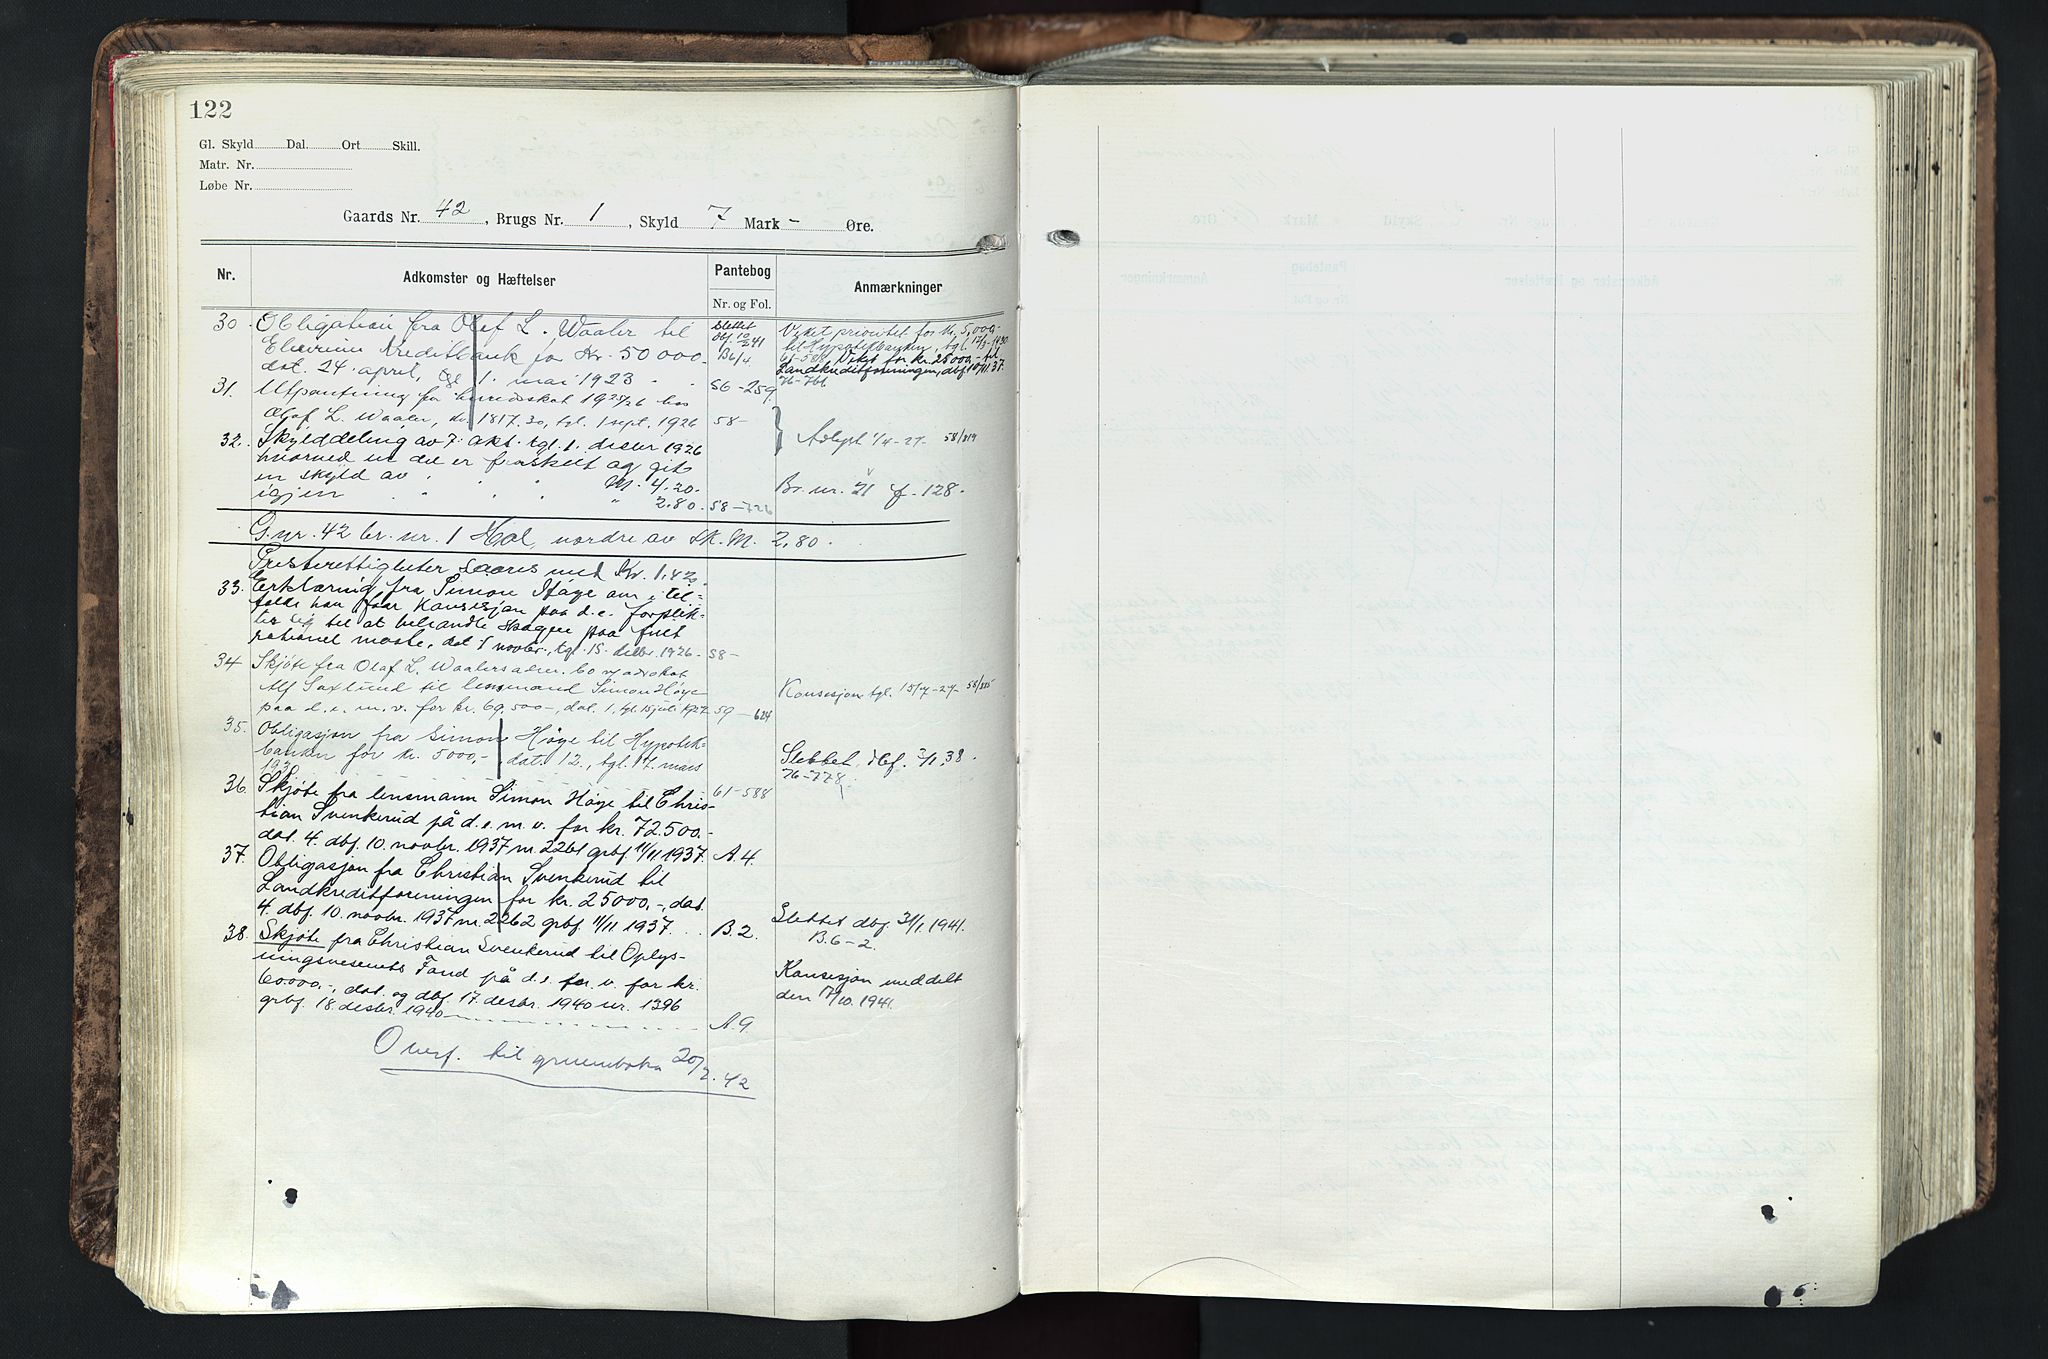 122
Gl. Skyld Dal. Ort Skill.
Matr. Nr.
Løbe Nr.
Gaards Nr. 42, Brugs Nr. 1, Skyld 7 Mark - Øre.
Nr. Adkomster og Hæftelser Pantebog Anmærkninger
Nr. og Fol.
30. Obligation fra Olef L. Waaler til
Elverum Kreditbank for Kr. 50 000.-
dat. 24. april, tgl 1. mai 1923
Slettet
dbf. 10/2 41
B6/4
Veket prioritet for kr. 5,000.-
til Hypotekbanken, tgl. 17/3-1930
61-588, Vekt for kr. 25000,- til
Landkreditforeningen, dbf. 10/11. 37.
76-761
31. Utpantning for herredsskat 1925/26 hos 56-259
Olaf L. Waaler, kr. 1817.30, tgl. 1 sept. 1926 58-
Avlyst 1/4-27- 58/819
32. Skylddeling av 7. okt. tgl. 1. desbr 1926
hvorved ut del er fraskilt og git
en skyld av M. 4.20.
Br. nr. 21 f. 128.
igjen " 2.80. 58-726
G.nr. 42 br. nr. 1 Hol, nordre av Sk. M. 2,80.
Presterettigheter svares med Kr. 1.42
33. Erklæring fra Simon Høye om i til-
fælde han faar konsesjon paa d.e. forplik-
ter sig til at behandle skogen paa fuct
rationel maate, dat 1 novbr., tgl. 15. desbr. 1926 - 58-
34 Skjøte fra Olaf L. Waalers adm. bo v/ advokat
Alf Saxlund til lensmand Simon Høye
paa d. e. m. v. for kr. 69.500-, dat. 1, tgl. 15 juli 1927 59-624
Konsesjon tgl. 15/7-27- 58/885
35. Obligasjon fra Simon Høye til Hypotek-
banken for kr. 5000,-, dat. 12., tgl. 17. mars
1930 61-588
Slettet, dbf. 7/1. 38.
76-778
36. Skjøte fra lensmann Simon Høye til Chris-
tian Svenkerud på d. e. m. v. for kr. 72.500.-
dat. 4. dbf. 10. novbr. 1937 nr. 2261 grbf. 11/11 1937. A. 4
37. Obligasjon fra Christian Svenkerud til
Landkreditforeningen for kr. 25000,-, dat.
4. dbf. 10. novbr. 1937 nr. 2262 grbf. 11/11 1937. B. 2.
Slettet dbf. 31/1. 1941.
B. 6-2.
38. Skjøte fra Christian Svenkerud til Oplys-
ningsvesenets Fond på d. e. m. v. for kr.
60.000,-, dat. og dbf. 17. desbr. 1940 nr. 1396
grbf. 18. desbr. 1940 A. 9.
Konsesjon meddelt
den 17/10. 1941.
Overf. til grunnboka 20/7. 42